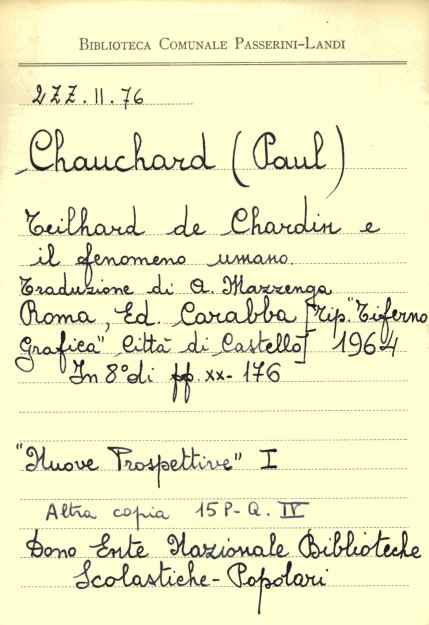 BIBLIOTECA COMUNALE PASSERINI-LANDI
2ZZ.II.76
Chauchard (Paul)
Teilhard de Chardin e
il fenomeno umano.
Traduzione di A. Mazzenga
Roma, Ed. Carabba [Tip. "Tiferno
Grafica" Città di Castello] 1964
In 8° di pp. xx-176
"Nuove Prospettive" I
Altra copia 15 P-Q. IV
Dono Ente Nazionale Biblioteche
Scolastiche-Popolari